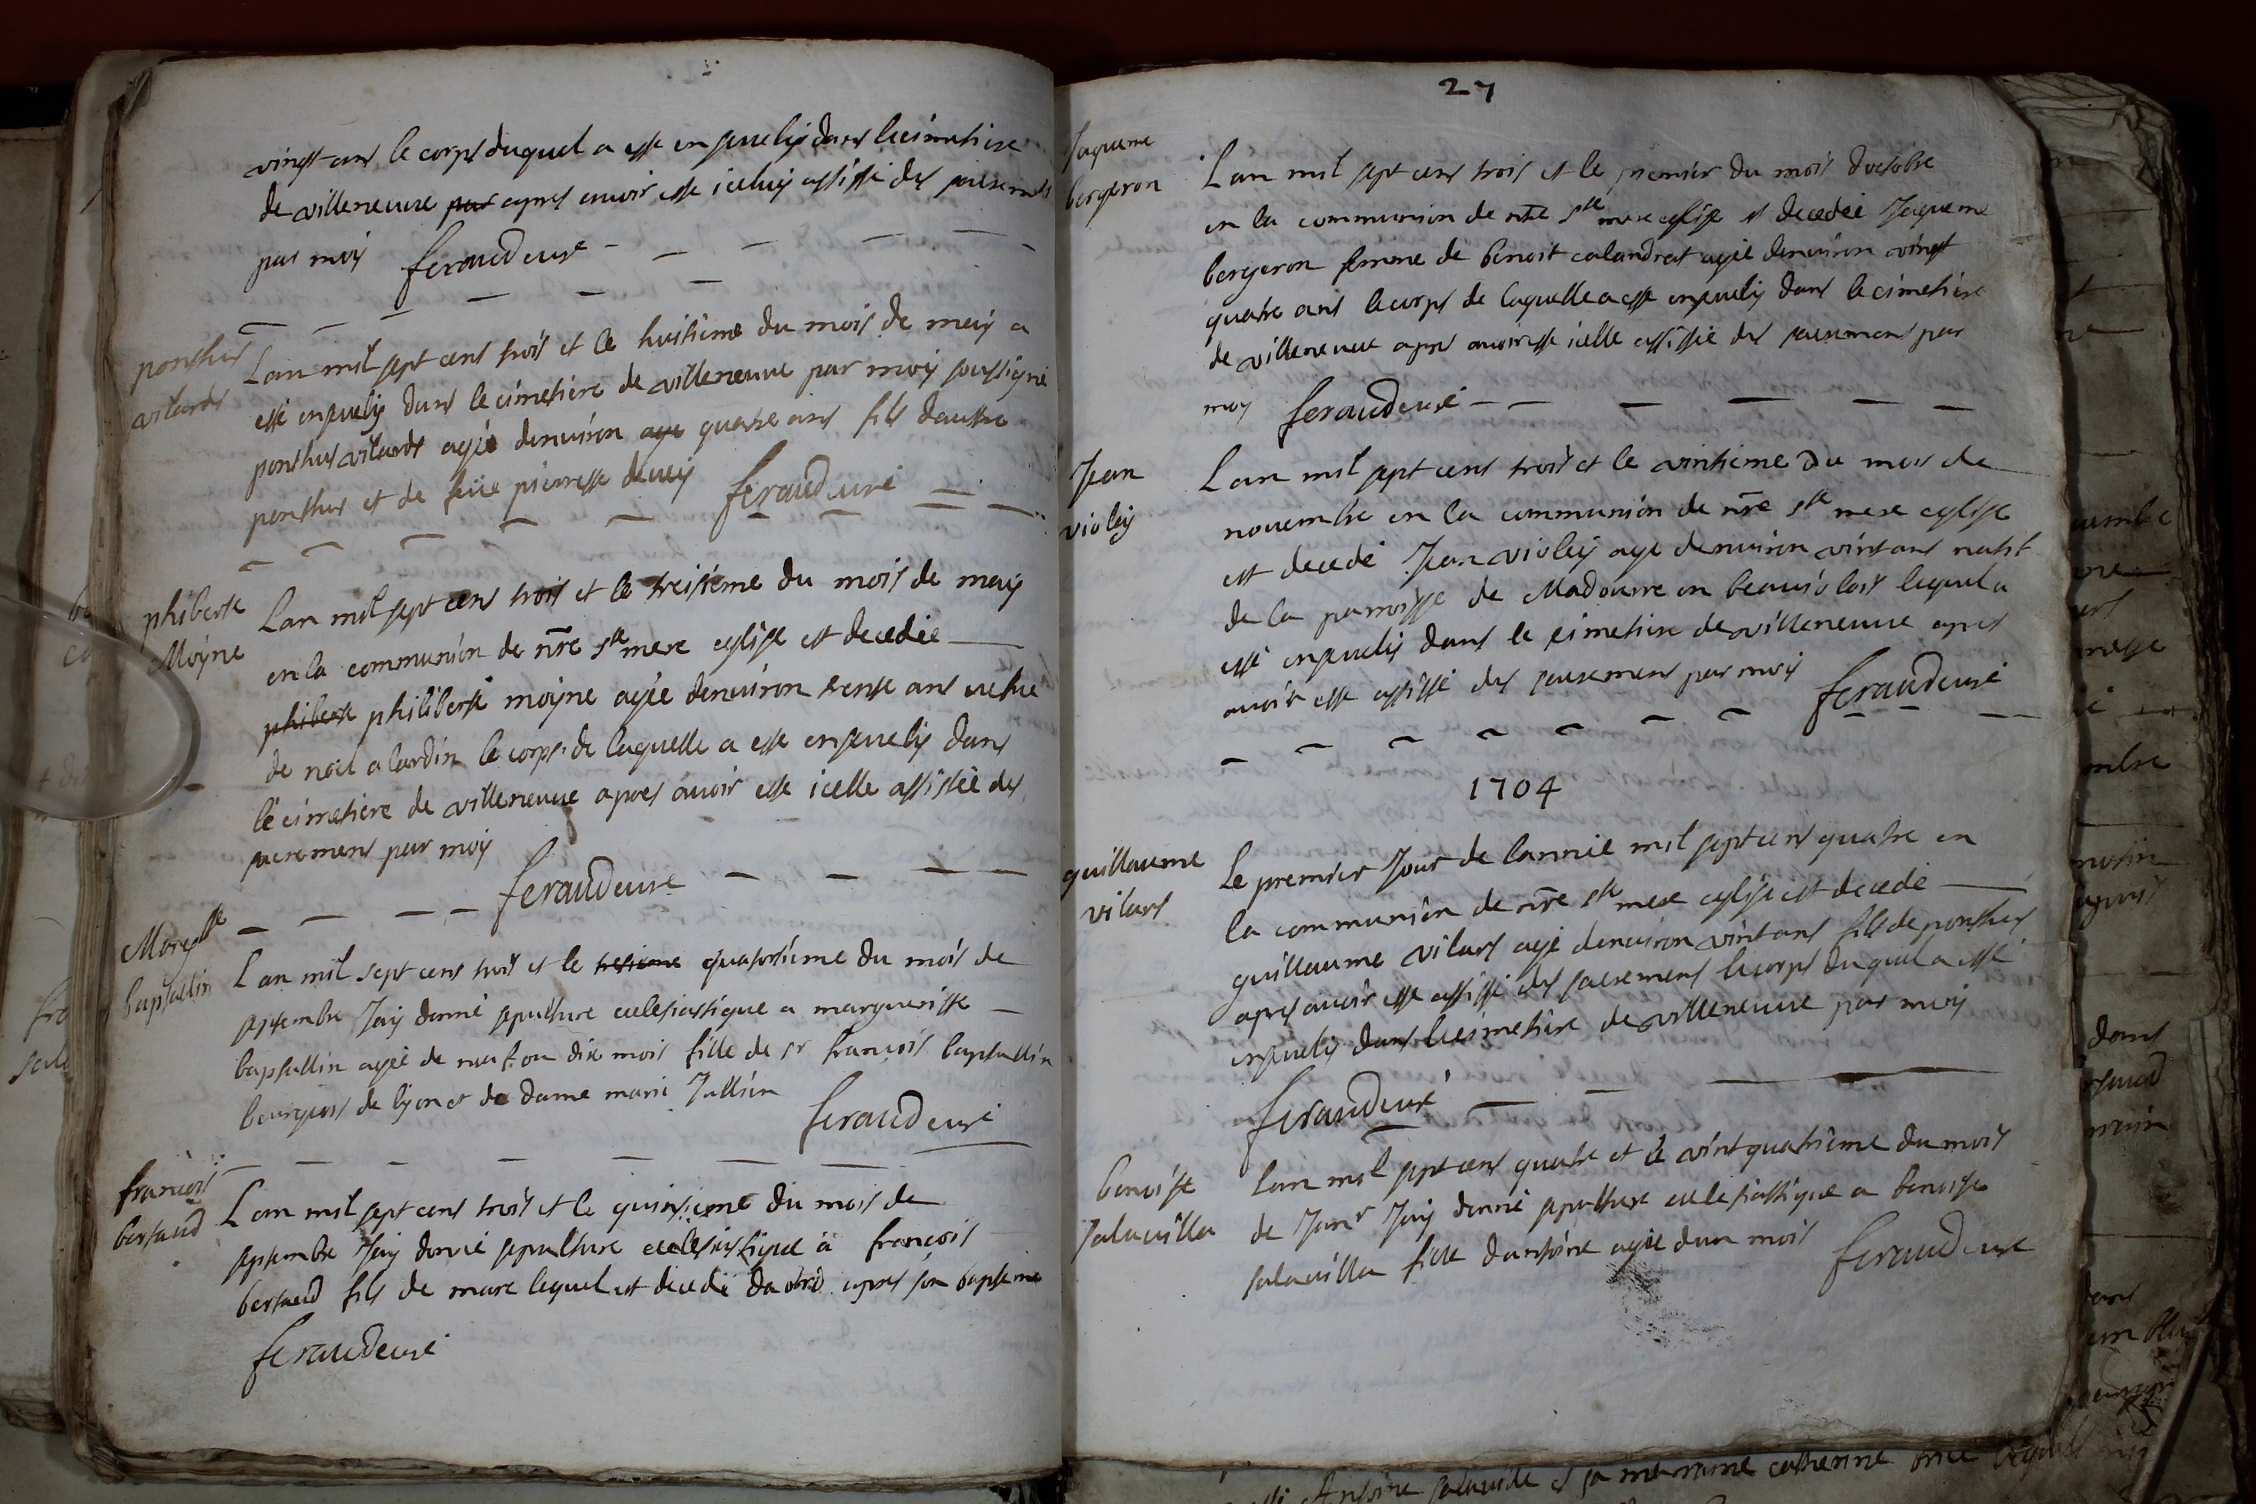 vingt ans le corps duquel a esté ensevely dans le cimetiere
de villeneuve par apres avoir esté iceluy assisté des sacremens
par moy feraud curé
ponthus
vilards
Lan mil sept cens trois et le huitieme du mois de may a
esté ensevely dans le cimetiere de villeneuve par moy soussigné
ponthus vilards agé denviron age quatre ans fils dautre
ponthus et de feüe pierrette devey feraud curé
philiberte
Moyne
Lan mil sept cens trois et le treisieme du mois de may
en la communion de nre ste mere eglise est decedée
philiberte philiberte moyne agée denviron trente ans vefve
de noel alardin le corps de laquelle a esté ensevely dans
le cimetiere de villeneuve apres avoir esté icelle assistée des
sacremens par moy
feraud curé
Margtte
baptallin
Lan mil sept cens trois et le quatorsieme du mois de
septembre Jay donné sepulture ecclesiastique a margueritte
baptallin agée de neuf ou dix mois fille de sr francois baptallin
bourgeois de lyon et de dame marie Jullien
feraud curé
francois
bertaud
Lan mil sept cens trois et le quinsieme du mois de
septembre Jay donné sepulture ecclesiastique à francois
bertaud fils de marc lequel est decedé dabord apres son bapteme
feraud curé
27
Jaqueme
bergeron
Lan mil sept cens trois et le premier du mois doctobre
en la communion de nre ste mere eglise est decedée Jaqueme
bergeron femme de benoit calandrat agée denviron vingt
quatre ans le corps de laquelle a esté ensevely dans le cimetiere
de villeneuve apres avoir esté icelle assistée des sacremens par
moy feraud curé
Jean
violey
Lan mil sept cens trois et le vintieme du mois de
novembre en la communion de nre ste mere eglise
est decedé Jean violey agé denviron vint ans natif
de la parroisse de Madourre en beaujolois lequel a
esté ensevely dans le cimetiere de villeneuve apres
avoir esté assisté des sacremens par moy feraud curé
1704
guillaume
vilars
Le premier Jour de lannée mil sept cens quatre en
la communion de nre ste mere eglise est decedé
guillaume vilars agé denviron vint ans fils de ponthus
apres avoir esté assisté des sacremens le corps duquel a esté
ensevely dans le cimetiere de villeneuve par moy
feraud curé
benoiste
Salavilla
Lan mil sept cens quatre et le vint quatrieme du mois
de Janr Jay donné sepulture ecclesiastique a benoiste
salavilla fille dantoine agée dun mois feraud curé
Antoine salaville et sa mere catherine